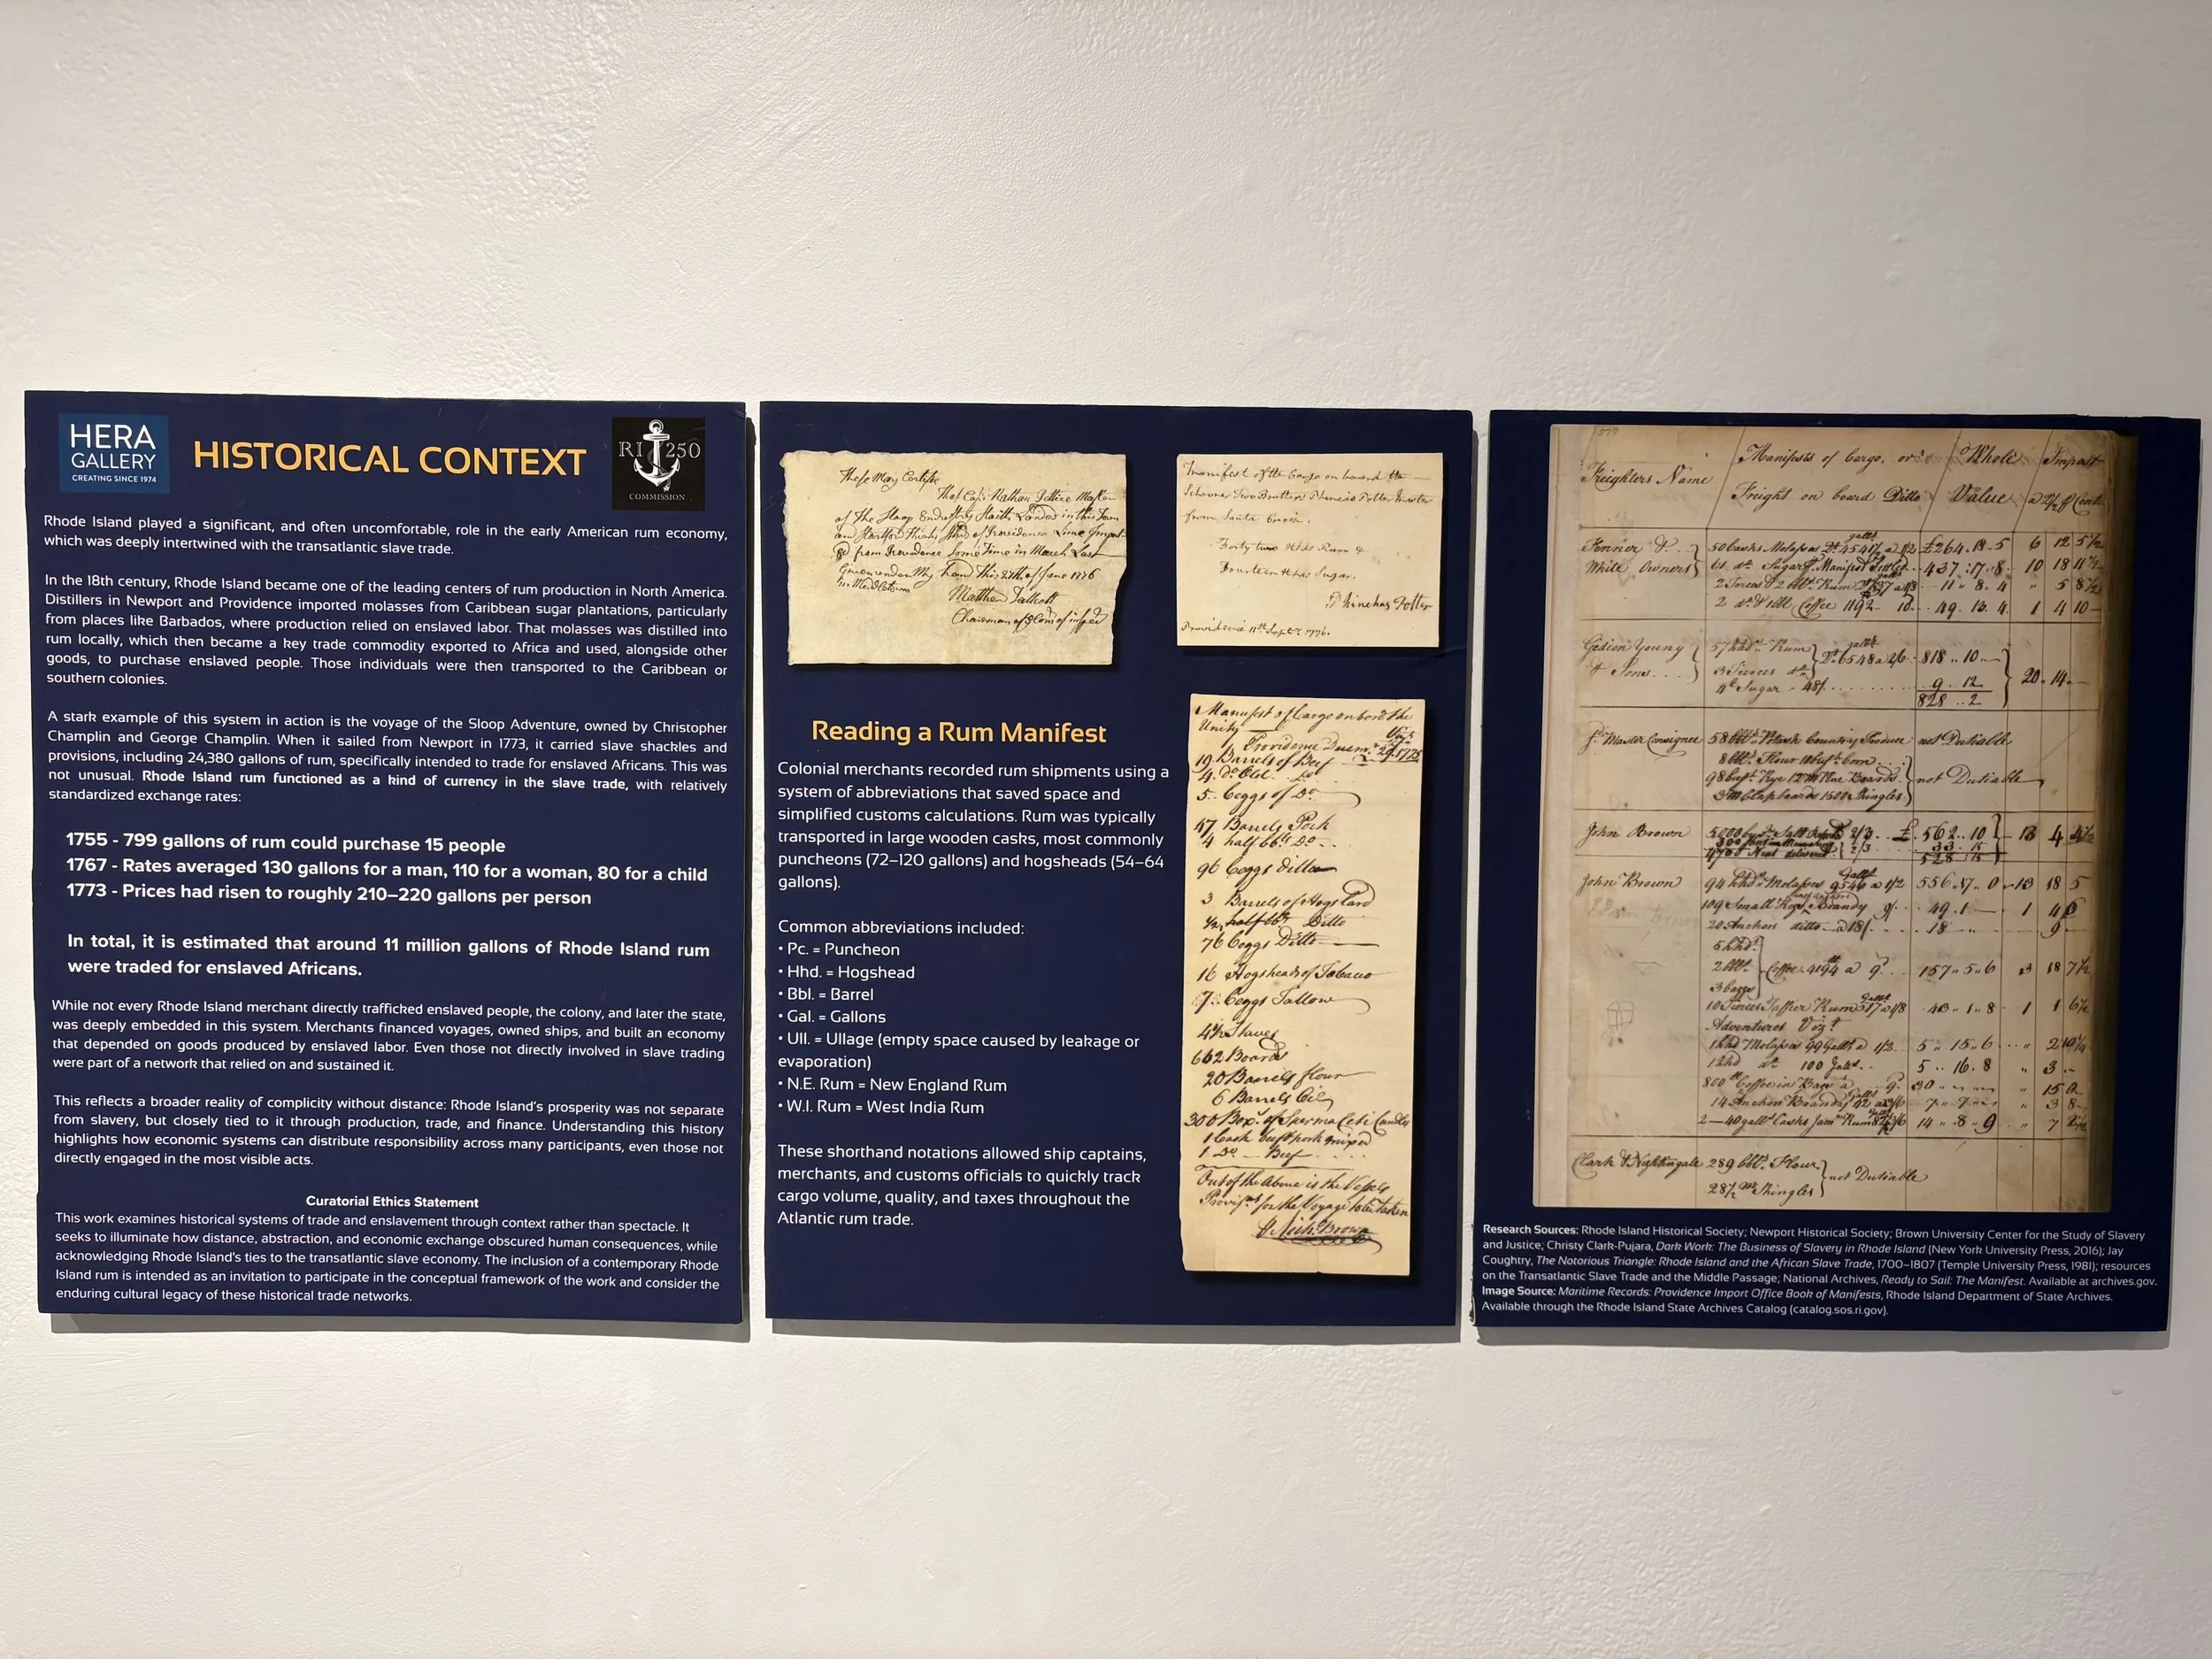 HERA
GALLERY
CREATING SINCE 1974
HISTORICAL CONTEXT
RI 250
COMMISSION
Rhode Island played a significant, and often uncomfortable, role in the early American rum economy,
which was deeply intertwined with the transatlantic slave trade.
In the 18th century, Rhode Island became one of the leading centers of rum production in North America.
Distillers in Newport and Providence imported molasses from Caribbean sugar plantations, particularly
from places like Barbados, where production relied on enslaved labor. That molasses was distilled into
rum locally, which then became a key trade commodity exported to Africa and used, alongside other
goods, to purchase enslaved people. Those individuals were then transported to the Caribbean or
southern colonies.
A stark example of this system in action is the voyage of the Sloop Adventure, owned by Christopher
Champlin and George Champlin. When it sailed from Newport in 1773, it carried slave shackles and
provisions, including 24,380 gallons of rum, specifically intended to trade for enslaved Africans. This was
not unusual. Rhode Island rum functioned as a kind of currency in the slave trade, with relatively
standardized exchange rates:
1755 - 799 gallons of rum could purchase 15 people
1767 - Rates averaged 130 gallons for a man, 110 for a woman, 80 for a child
1773 - Prices had risen to roughly 210–220 gallons per person
In total, it is estimated that around 11 million gallons of Rhode Island rum
were traded for enslaved Africans.
While not every Rhode Island merchant directly trafficked enslaved people, the colony, and later the state,
was deeply embedded in this system. Merchants financed voyages, owned ships, and built an economy
that depended on goods produced by enslaved labor. Even those not directly involved in slave trading
were part of a network that relied on and sustained it.
This reflects a broader reality of complicity without distance: Rhode Island's prosperity was not separate
from slavery, but closely tied to it through production, trade, and finance. Understanding this history
highlights how economic systems can distribute responsibility across many participants, even those not
directly engaged in the most visible acts.
Curatorial Ethics Statement
This work examines historical systems of trade and enslavement through context rather than spectacle. It
seeks to illuminate how distance, abstraction, and economic exchange obscured human consequences, while
acknowledging Rhode Island's ties to the transatlantic slave economy. The inclusion of a contemporary Rhode
Island rum is intended as an invitation to participate in the conceptual framework of the work and consider the
enduring cultural legacy of these historical trade networks.
These May Certify
That Capt Nathan
of the Sloop
from Providence Some Time in March Last
Given under My hand This 27th of June 1776
Matthew Talcott
Chairman of
Manifest of the Cargo on board the
Schooner Two Brothers Phineas Potter Master
from Santa Croix.
Forty two Hhds Rum &
Fourteen Hhds Sugar.
Phinehas Potter
Providence 11th Sept. 1776.
Reading a Rum Manifest
Colonial merchants recorded rum shipments using a
system of abbreviations that saved space and
simplified customs calculations. Rum was typically
transported in large wooden casks, most commonly
puncheons (72–120 gallons) and hogsheads (54–64
gallons).
Common abbreviations included:
• Pc. = Puncheon
• Hhd. = Hogshead
• Bbl. = Barrel
• Gal. = Gallons
• Ull. = Ullage (empty space caused by leakage or
evaporation)
• N.E. Rum = New England Rum
• W.I. Rum = West India Rum
These shorthand notations allowed ship captains,
merchants, and customs officials to quickly track
cargo volume, quality, and taxes throughout the
Atlantic rum trade.
Manifest of Cargo on bord the
Unity
Providence
19 Barrels of Beef
5 Ceggs of Do
47 Barrels Pork
4 half bbs Do
96 Ceggs ditto
3 Barrels of Hogs Lard
Ditto
76 Ceggs Ditto
16 Hogsheads of Tobacco
7 Ceggs Tallow
Staves
662 Boards
20 Barrels flour
6 Barrels Oil
300 Box's of Sperma Ceti Candles
1 Cask beef pork mixed
1 Do Beef
Out of the Above is the Vessels
Provis's for the Voyage to be taken
Brown
Freighters Name
Manifests of Cargo, or
Freight on board Ditto
Whole
Value
Impost
Fenner &
White Owners
50 Casks Molasses
£264.18.5
6 12 5½
437.17.8
10 18 11½
11 8. 4
5 8½
Coffee 1192
49. 13. 4
1 4 10
Gideon Young
& Sons
57 hhds Rum
6548 a 2/6
818 .. 10
3 Tierces
Sugar 48/
9 . 12
828 .. 2
20 .. 14
Master Consignee
Country Produce
not Dutiable
not Dutiable
Clapboards 1500 Shingles
John Brown
562 .. 10
13 4 4½
John Brown
94 hhds Molasses 9546 a 1/2
13 18 5
109 Small Kegs Brandy
49. 1
20 Anchors ditto a 18/
18
9
5 hhds
2 bbls
3 bags
Coffee 4194 a 9
157 .. 5 .. 6
3 18 7½
10 Tierces Taffier Rum
43 .. 1 .. 8
1 1 6½
Adventures Vizt
1 hhd Molasses 99 Galls a 1/2
5 .. 15 .. 6
100 Galls
5 .. 16. 8
3
Coffee in Bags
30
15 0
14 Anchors Brandy
3 8
14 .. 8 .. 9
Clark & Nightingale 289 bbls Flour
28½ M Shingles
not Dutiable
Research Sources: Rhode Island Historical Society; Newport Historical Society; Brown University Center for the Study of Slavery
and Justice; Christy Clark-Pujara, Dark Work: The Business of Slavery in Rhode Island (New York University Press, 2016); Jay
Coughtry, The Notorious Triangle: Rhode Island and the African Slave Trade, 1700–1807 (Temple University Press, 1981); resources
on the Transatlantic Slave Trade and the Middle Passage; National Archives, Ready to Sail: The Manifest. Available at archives.gov.
Image Source: Maritime Records: Providence Import Office Book of Manifests, Rhode Island Department of State Archives.
Available through the Rhode Island State Archives Catalog (catalog.sos.ri.gov).